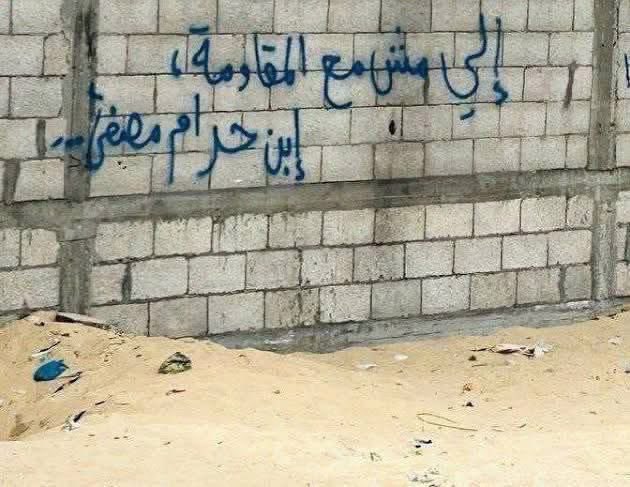 إلي مش مع المقاومة،
إبن حرام مصفى..